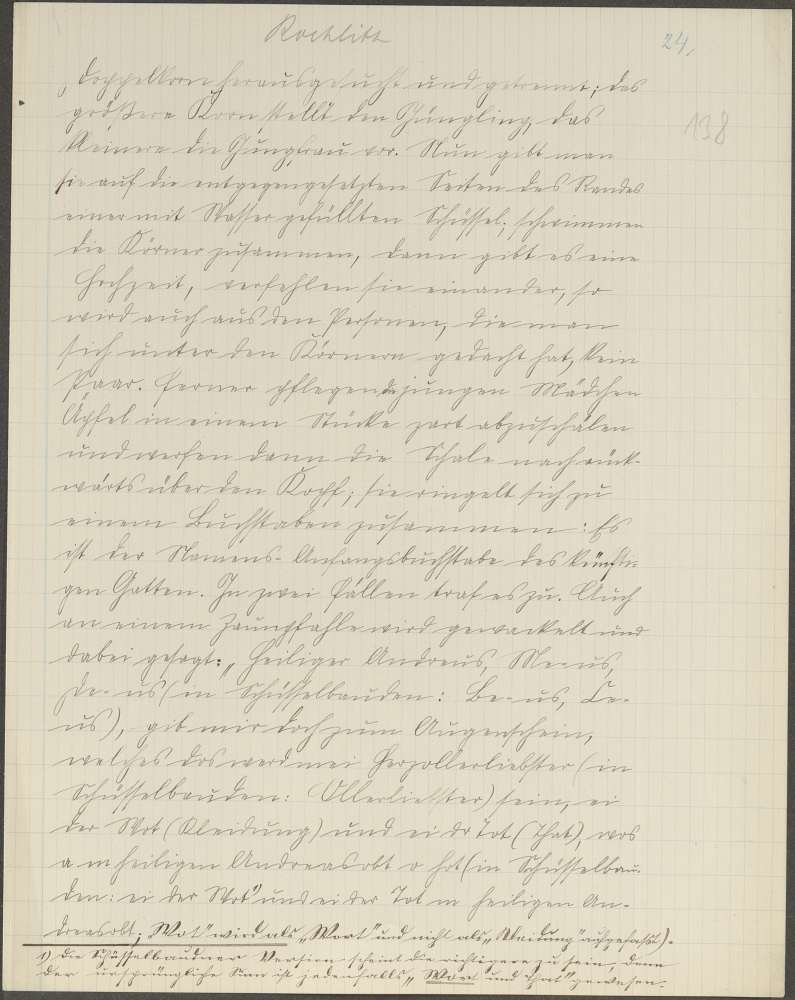 Rochlitz
24,
138
Doppelkorn herausgesucht und getrennt; das
größere Korn stellt den Jüngling, das
kleinere die Jungfrau vor. Nun gibt man
sie auf die entgegengesetzten Seiten des Randes
einer mit Wasser gefüllten Schüssel; schwimmen
die Körner zusammen, dann gibt es eine
Hochzeit, verfehlen sie einander, so
wird auch aus den Personen, die man
sich unter den Körnern gedacht hat, kein
Paar. Ferner pflegen die jungen Mädchen
Äpfel in einem Stücke zart abzuschälen
und werfen dann die Schale nach rück-
wärts über den Kopf; sie ringelt sich zu
einem Buchstaben zusammen: Es
ist der Namens-Anfangsbuchstabe des künfti-
gen Gatten. In zwei Fällen traf es zu. Auch
an einem Zaunpfahle wird gewackelt und
dabei gesagt: „Heiliger Andreus, Me-us,
De-us (in Schüsselbauden: Be-us, Ce-
us), gib mir doch zum Augenschein,
welches dos werd mei Herzollerliebster (in
Schüsselbauden: Ollerliebster) sein, ei
der Wot (Kleidung) und ei dr Tot (That), wos
a m heiligen Andreasobt o hot (in Schüsselbau-
den: ei der Wot¹⁾ und ei der Tot m heiligen An-
dreasobt; „Wot" wird als „Wort" und nicht als „Kleidung" aufgefaßt).
1) Die Schüsselbaudner Version scheint die richtigere zu sein, denn
der ursprüngliche Sinn ist jedenfalls „Wort und That" gewesen.